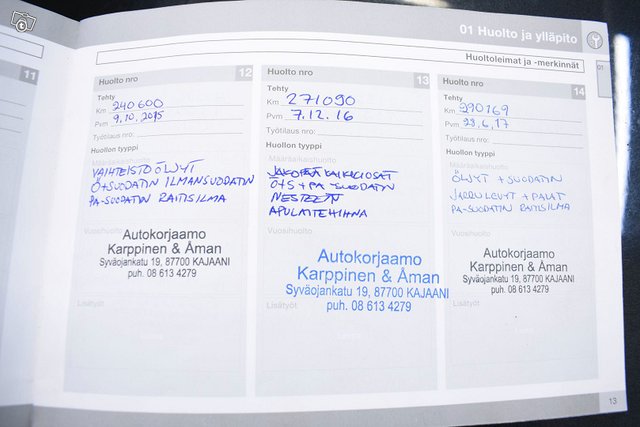 01 Huolto ja ylläpito
Huoltoleimat ja -merkinnät
01
11
Huolto nro 12
Tehty
Km 240600
Pvm 9.10.2015
Työtilaus nro:
Huollon tyyppi
Määräaikaishuolto
VAIHTEISTOÖLJYT
Ö+SUODATIN ILMANSUODATIN
PA-SUODATIN RAITISILMA
Vuosihuolto
Autokorjaamo
Karppinen & Åman
Syväojankatu 19, 87700 KAJAANI
puh. 08 613 4279
Lisätyöt
Huolto nro 13
Tehty
Km 271090
Pvm 7.12.16
Työtilaus nro:
Huollon tyyppi
Määräaikaishuolto
JAKOPÄÄ KAIKKI OSAT
Ö+S + PA-SUODATIN
APULAITEHIHNA
Vuosihuolto
Autokorjaamo
Karppinen & Åman
Syväojankatu 19, 87700 KAJAANI
puh. 08 613 4279
Lisätyöt
Huolto nro 14
Tehty
Km 290169
Pvm 29.6.17
Työtilaus nro:
Huollon tyyppi
Määräaikaishuolto
ÖLJYT + SUODATIN
JARRULEVYT + PALAT
PA-SUODATIN RAITISILMA
Vuosihuolto
Autokorjaamo
Karppinen & Åman
Syväojankatu 19, 87700 KAJAANI
puh. 08 613 4279
Lisätyöt
13